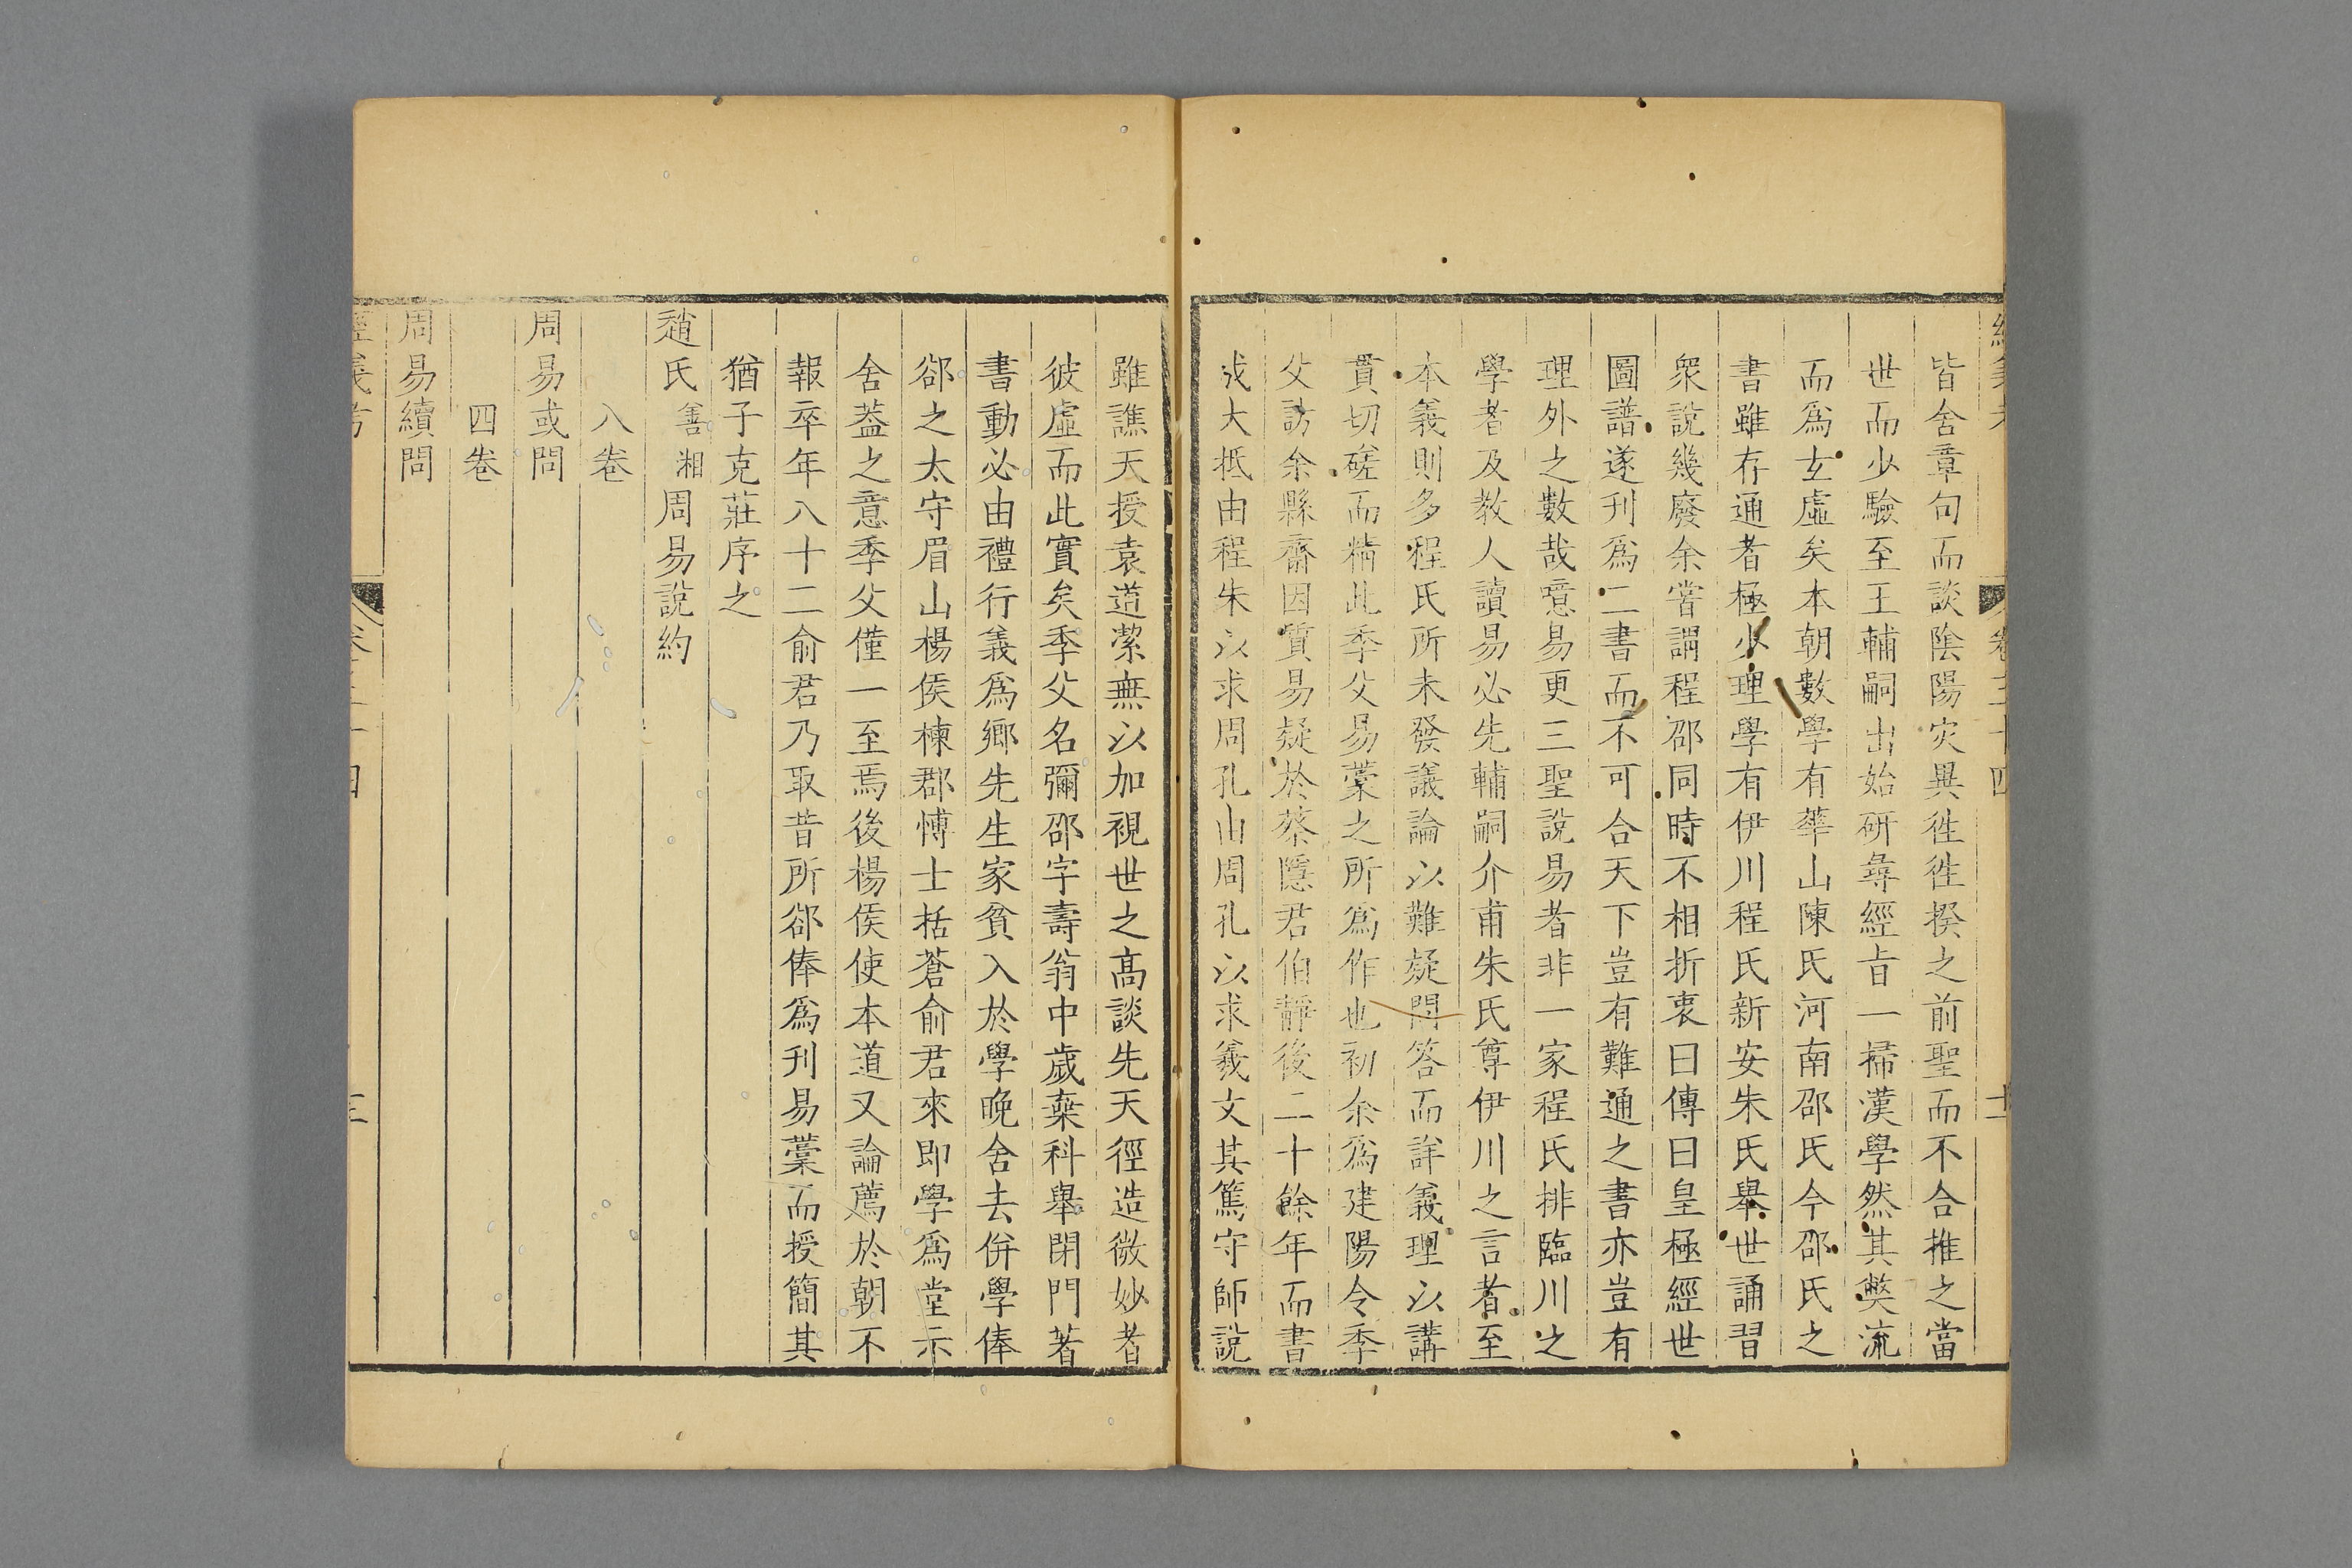 皆舍章句而談陰陽灾異徃徃揆之前聖而不合推之當
世而少驗至王輔嗣出始研尋經㫖一掃漢學然其獘流
而爲𤣥虛矣本朝數學有華山陳氏河南邵氏今邵氏之
書雖存通者極少理學有伊川程氏新安朱氏舉世誦習
衆說幾廢余嘗謂程邵同時不相折衷曰傳曰皇極經世
圖譜遂刊爲二書而不可合天下豈有難通之書亦豈有
理外之數哉噫易更三聖說易者非一家程氏排臨川之
學者及教人讀易必先輔嗣介甫朱氏尊伊川之言者至
本義則多程氏所未發議論以難疑問答而詳義理以講
貫切磋而精此季父易藁之所爲作也初余爲建陽令季
父訪余縣齋因質易疑於蔡隱君伯靜後二十餘年而書
成大抵由程朱以求周孔由周孔以求羲文其篤守師說
雖譙天授袁道潔無以加視世之高談先天徑造微妙者
彼虛而此實矣季父名彌邵字壽翁中歲棄科舉閉門著
書動必由禮行義爲鄉先生家貧入於學晚舍去倂學俸
郤之太守眉山楊侯棟郡博士括蒼俞君來即學爲堂示
舍葢之意季父僅一至焉後楊侯使本道又論薦於朝不
報卒年八十二俞君乃取昔所郤俸爲刊易藁而授簡其
猶子克莊序之
趙氏善湘周易說約
八卷
周易或問
四卷
周易續問